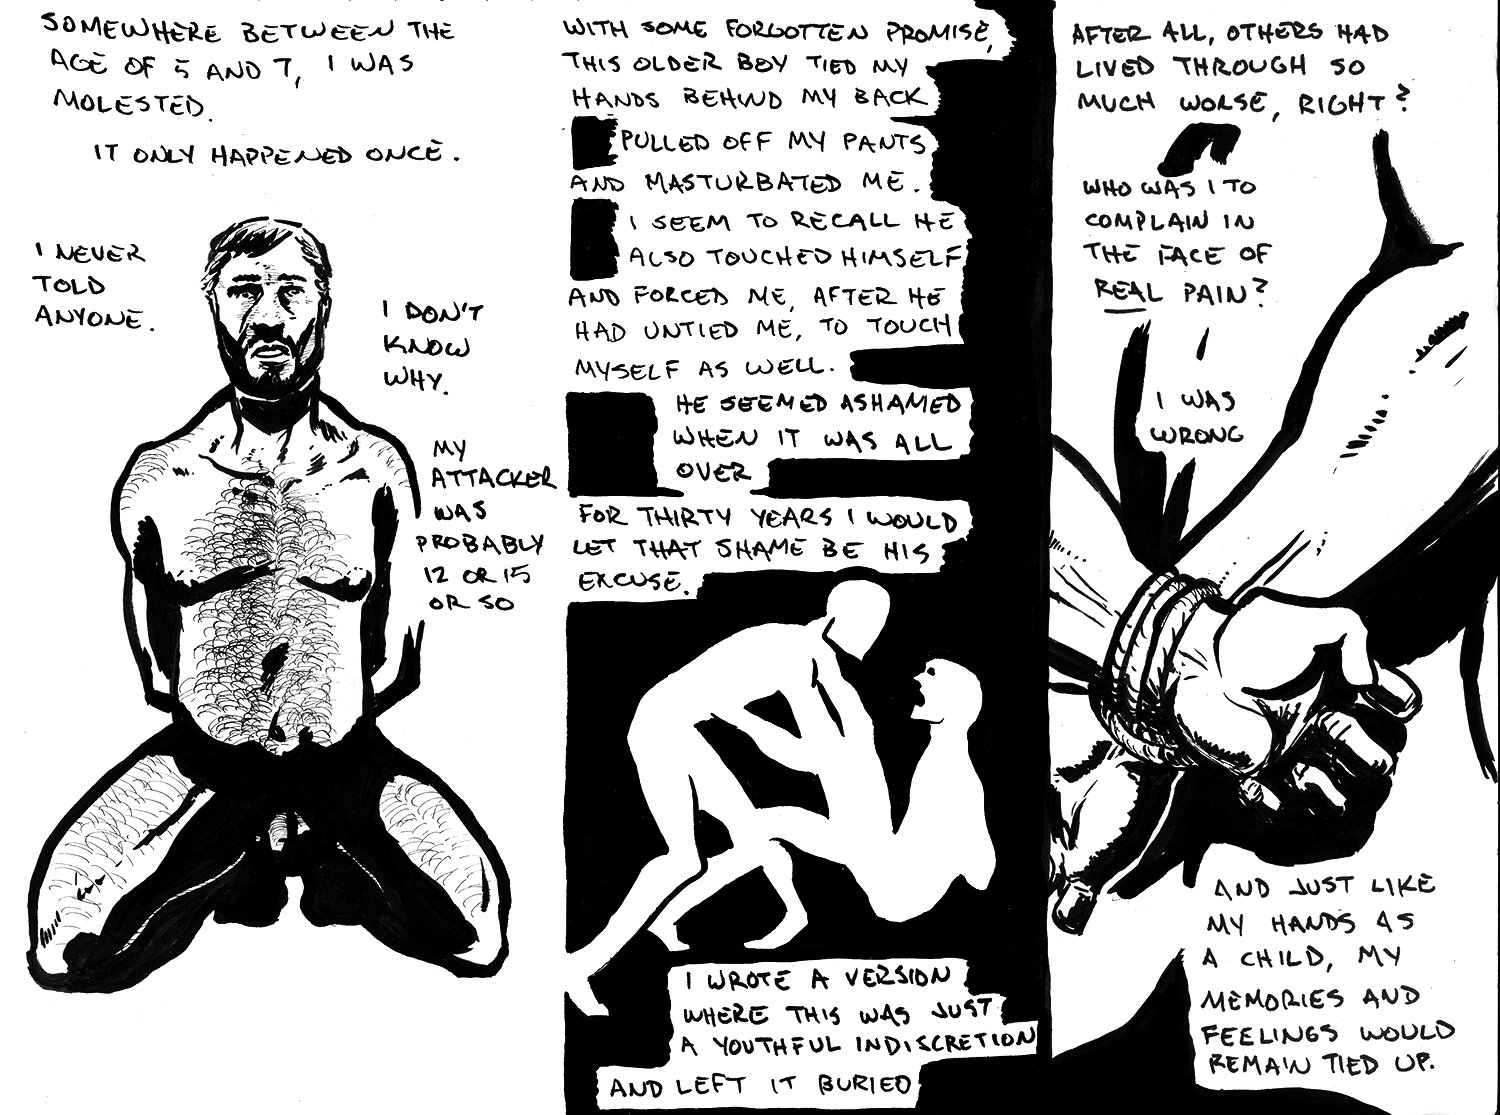 SOMEWHERE BETWEEN THE
AGE OF 5 AND 7, I WAS
MOLESTED.
IT ONLY HAPPENED ONCE.
I NEVER
TOLD
ANYONE.
I DON'T
KNOW
WHY.
MY
ATTACKER
WAS
PROBABLY
12 OR 15
OR SO
WITH SOME FORGOTTEN PROMISE,
THIS OLDER BOY TIED MY
HANDS BEHIND MY BACK
PULLED OFF MY PANTS
AND MASTURBATED ME.
I SEEM TO RECALL HE
ALSO TOUCHED HIMSELF
AND FORCED ME, AFTER HE
HAD UNTIED ME, TO TOUCH
MYSELF AS WELL.
HE SEEMED ASHAMED
WHEN IT WAS ALL
OVER
FOR THIRTY YEARS I WOULD
LET THAT SHAME BE HIS
EXCUSE.
I WROTE A VERSION
WHERE THIS WAS JUST
A YOUTHFUL INDISCRETION
AND LEFT IT BURIED
AFTER ALL, OTHERS HAD
LIVED THROUGH SO
MUCH WORSE, RIGHT?
WHO WAS I TO
COMPLAIN IN
THE FACE OF
REAL PAIN?
I WAS
WRONG
AND JUST LIKE
MY HANDS AS
A CHILD, MY
MEMORIES AND
FEELINGS WOULD
REMAIN TIED UP.